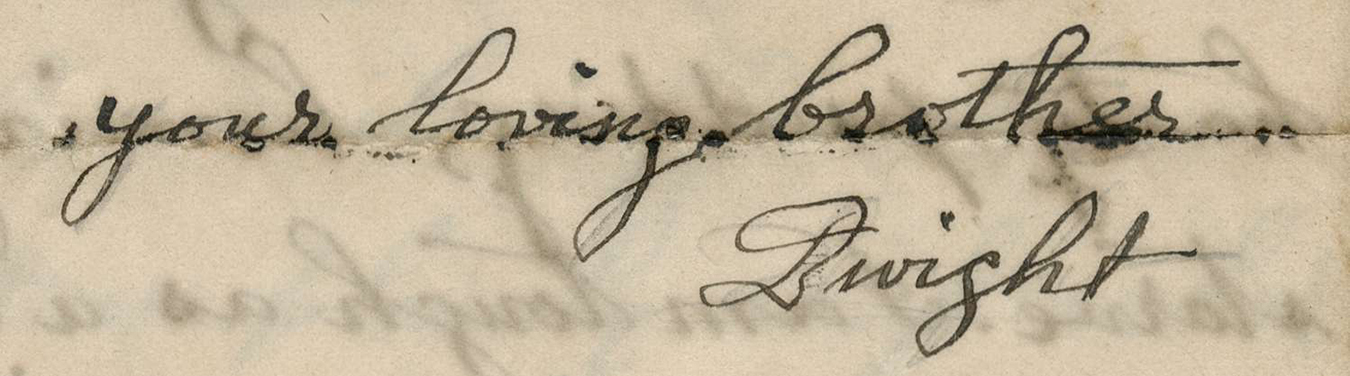 your loving brother
Dwight